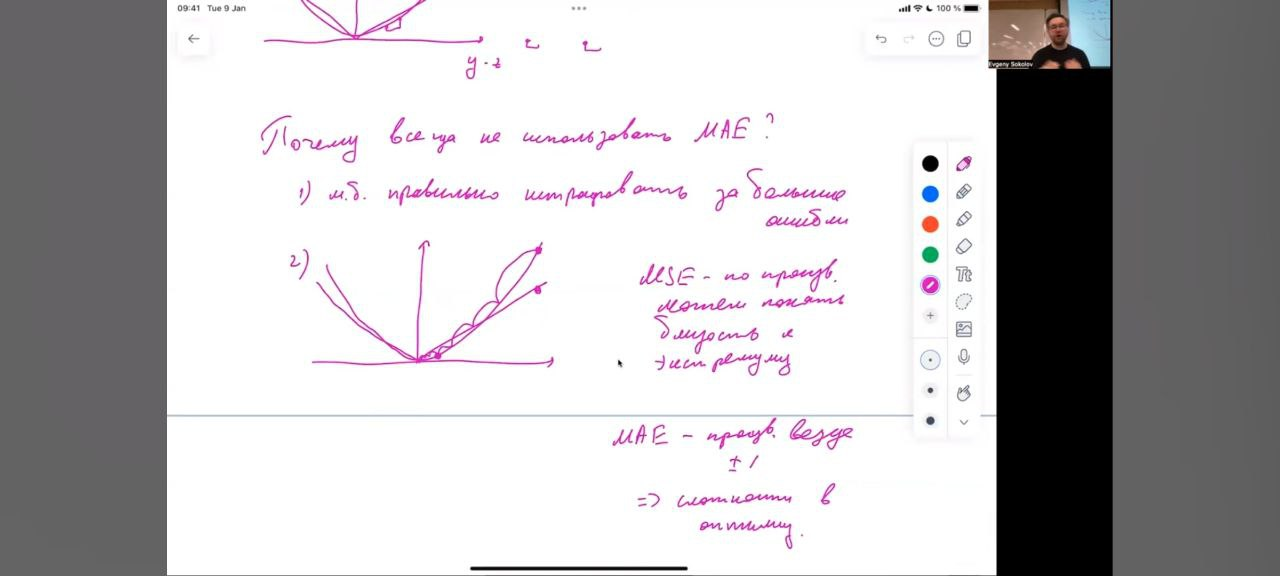 09:41 Tue 9 Jan
100 %
Evgeny Sokolov
y - z
Почему всегда не использовать MAE?
1) м.б. правильно штрафовать за большие
ошибки
2)
MSE - по произв.
можем понять
близость к
экстремуму
Tt
MAE - произв. везде
± 1
=> сложности в
оптимиз.